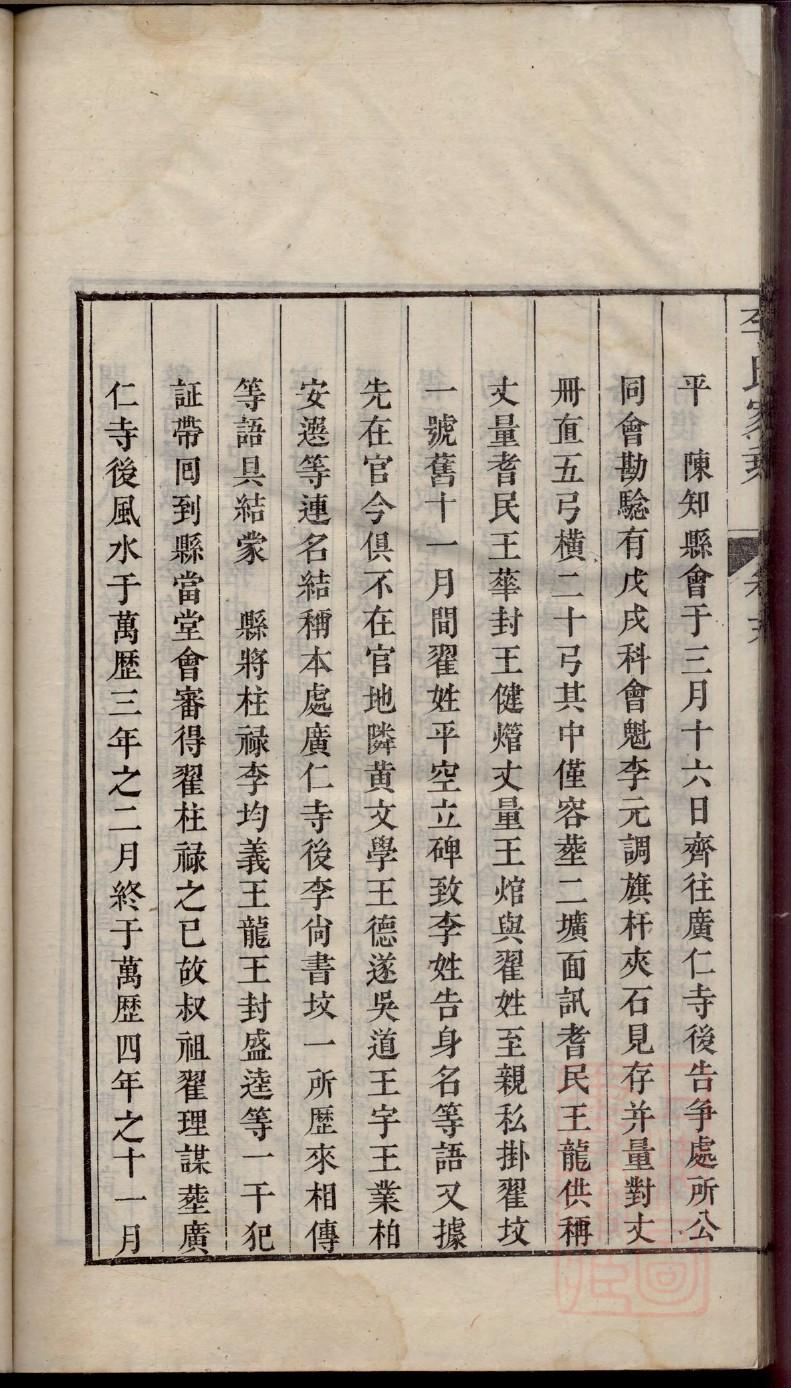 平　陳知縣會于三月十六日齊往廣仁寺後告爭處所公
同會勘騐有戊戌科會魁李元調旗杆夾石見存并量對丈
冊直五弓橫二十弓其中僅容塟二壙面訊耆民王龍供稱
丈量耆民王華封王健熸丈量王熍與翟姓至親私掛翟坟
一號舊十一月間翟姓平空立碑致李姓告身名等語又據
先在官今俱不在官地隣黄文學王德遂吳道王字王業柏
安選等連名結稱本處廣仁寺後李尚書坟一所歷來相傳
等語具結蒙　縣將柱祿李均義王龍王封盛逵等一干犯
証帶囘到縣當堂會審得翟柱祿之已故叔祖翟理謀塟廣
仁寺後風水于萬歷三年之二月終于萬歷四年之十一月